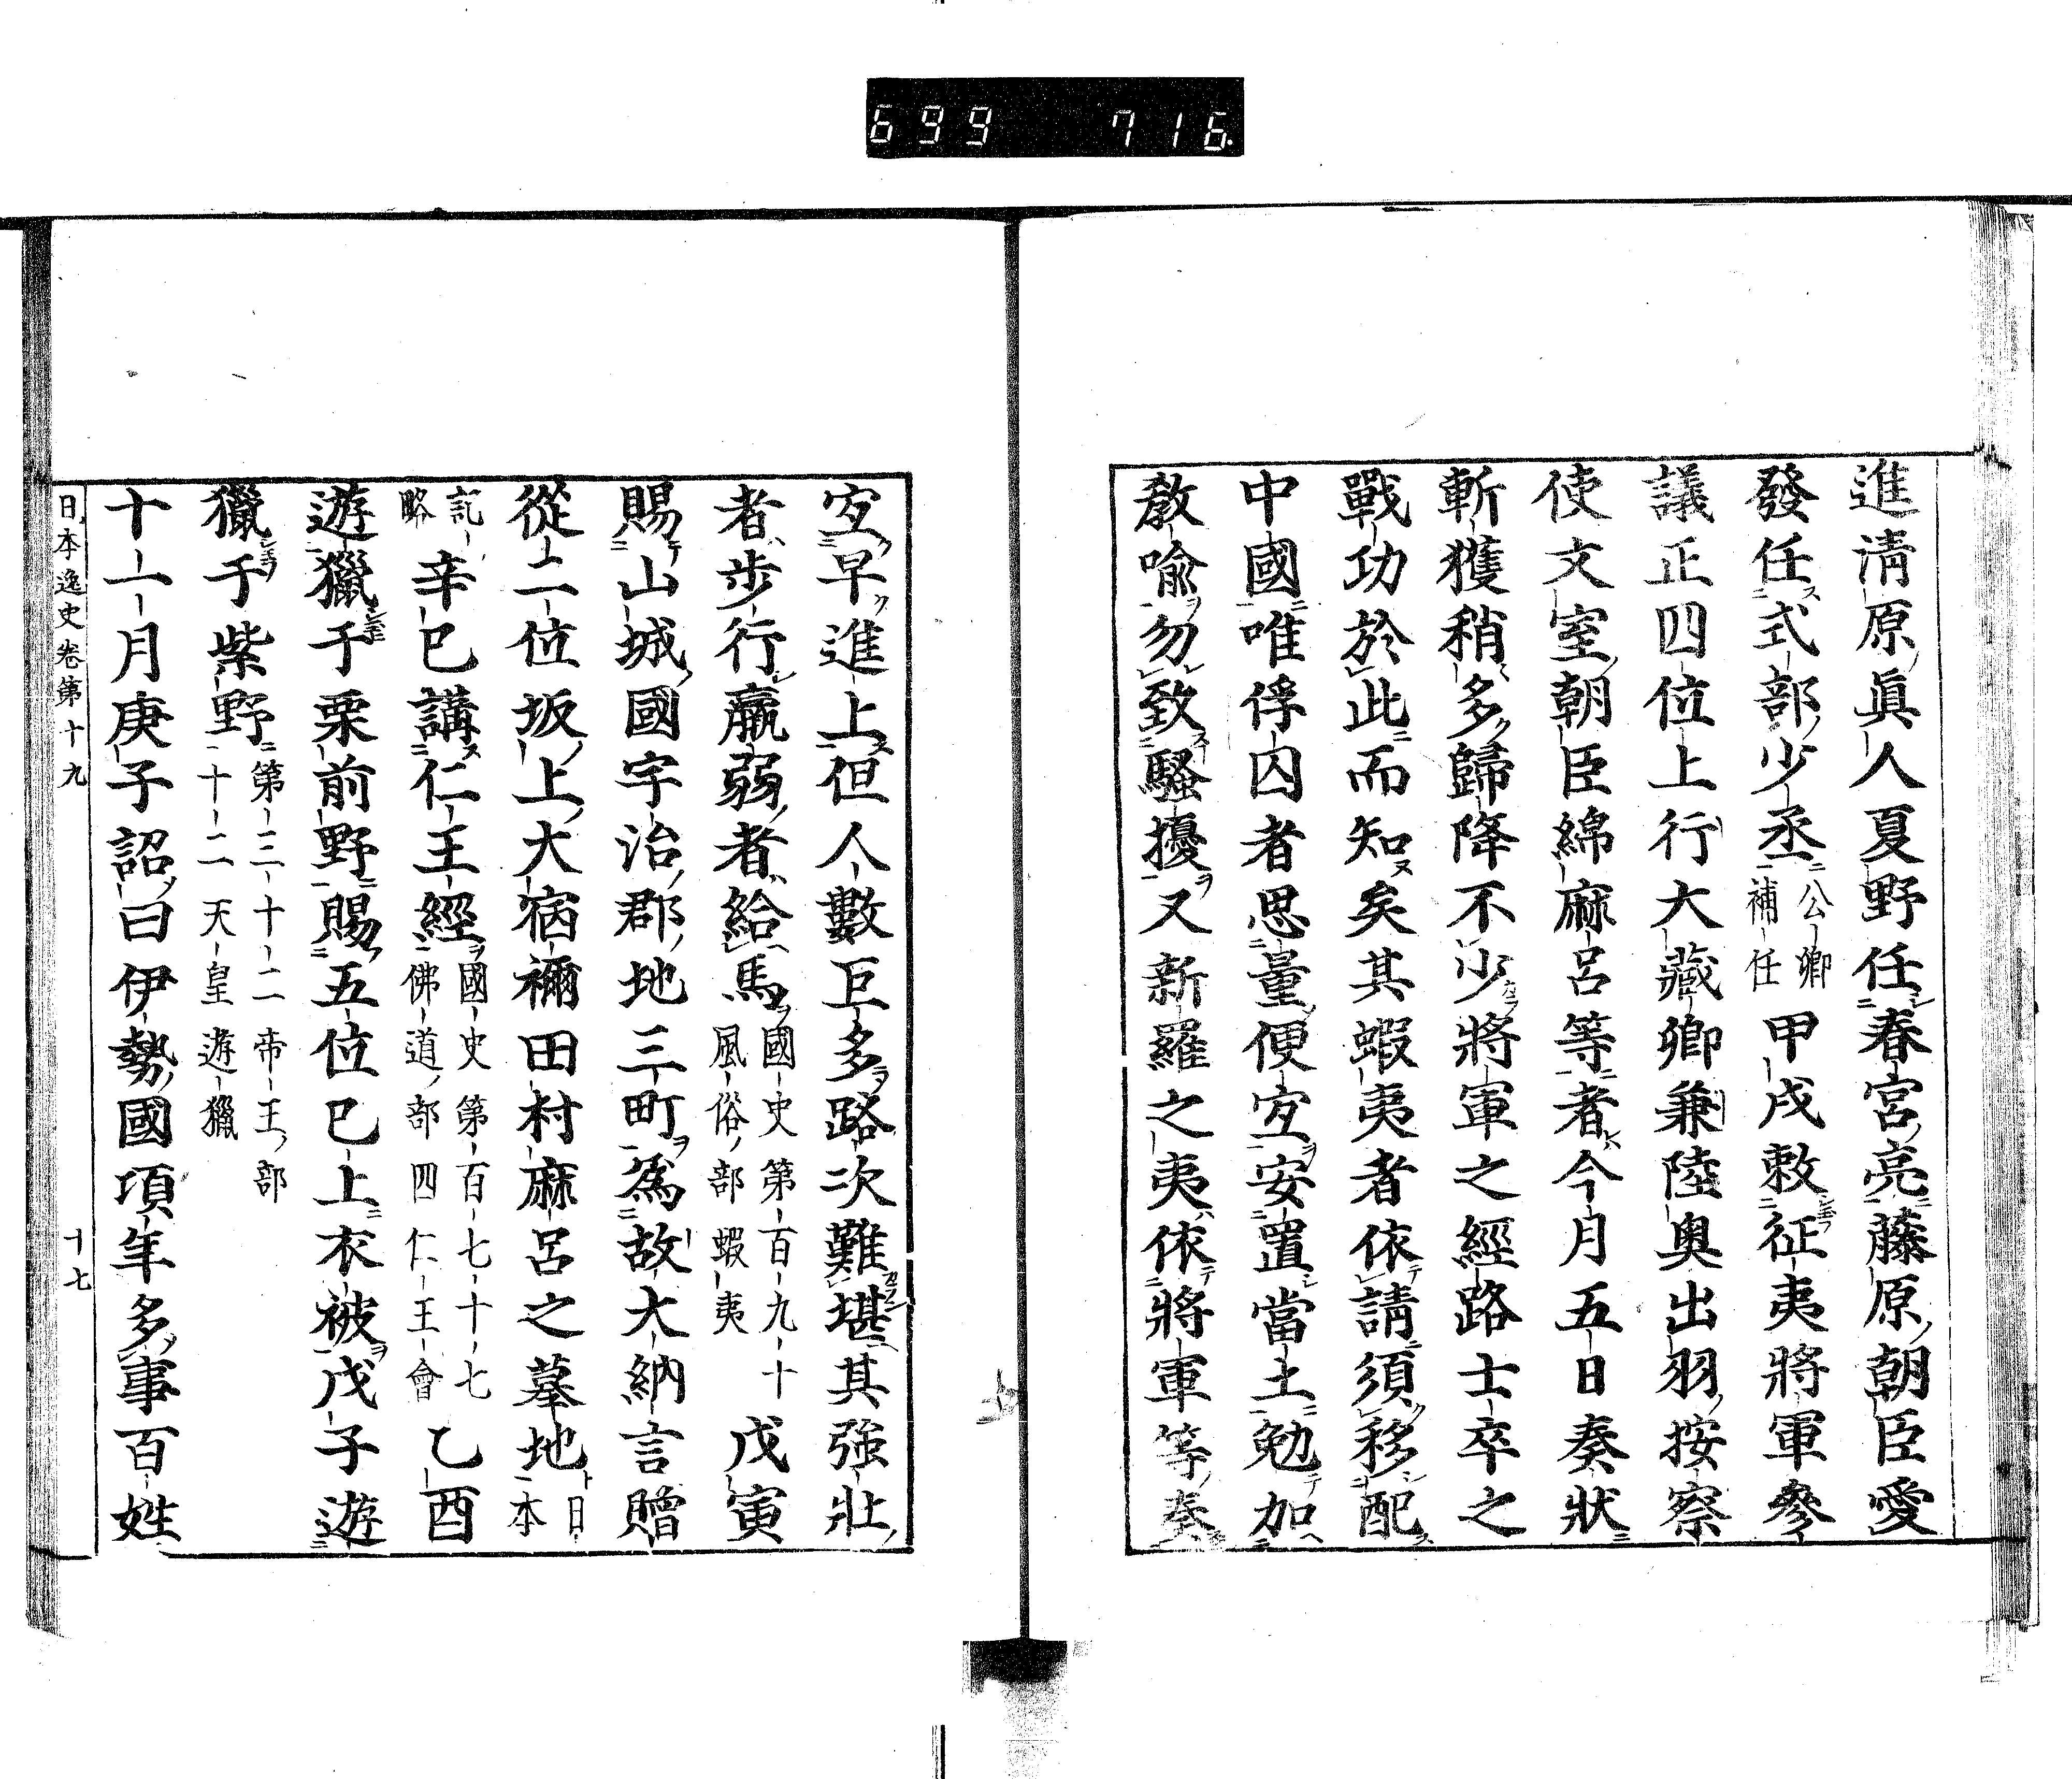 699 716
進清原眞人夏野任春宮亮藤原朝臣愛
發任式部少丞公卿補任甲戌敕征夷將軍參
議正四位上行大藏卿兼陸奧出羽按察
使文室朝臣綿麻呂等者今月五日奏狀
斬獲稍多歸降不少將軍之經路士卒之
戰功於此而知矣其蝦夷者依請須移配
中國唯俘囚者思量便宐安置當土勉加
教喩勿致騷擾又新羅之夷依將軍等奏
宐早進上但人數巨多路次難堪其強壯
者步行羸弱者給馬國史第百九十風俗部蝦夷戊寅
賜山城國宇治郡地三町爲故大納言贈
從二位坂上大宿禰田村麻呂之墓地日本
記略辛巳講仁王經國史第百七十七佛道部四仁王會乙酉
遊獵于栗前野賜五位已上衣被戊子遊
獵于紫野第三十二帝王部十二天皇遊獵
十一月庚子詔曰伊勢國項年多事百姓
日本逸史卷第十九 十七